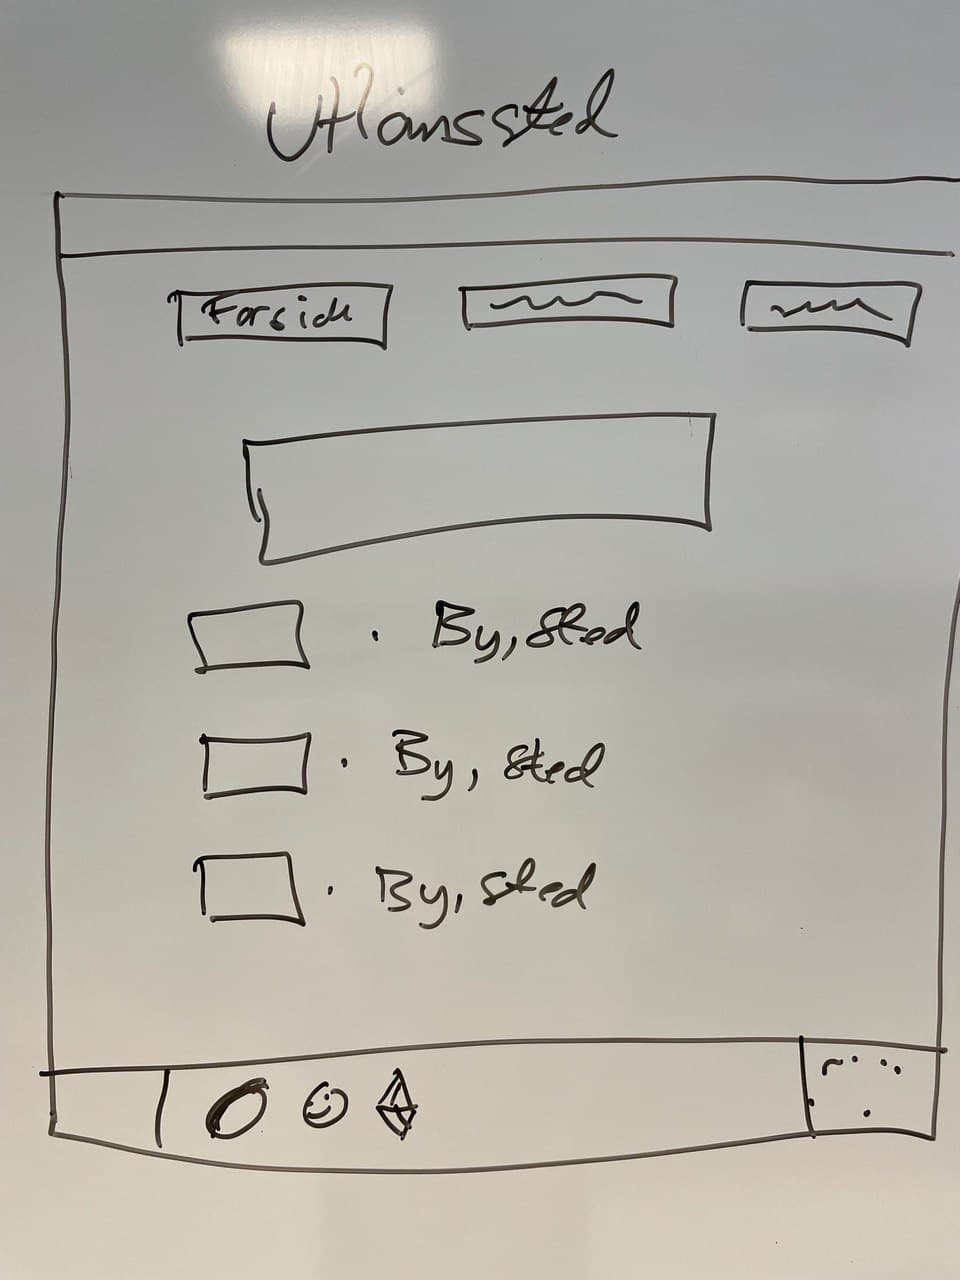 Utlånssted
Forside
By, sted
By, sted
By, sted